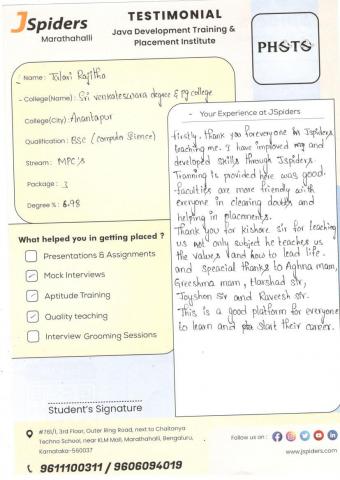 JSpiders
Marathahalli
TESTIMONIAL
Java Development Training &
Placement Institute
PHOTO
Name : Talari Rajitha
College(Name) : Sri venkateswara degree & pg college
College(City) : Anantapur
Qualification : BSC (computer Science)
Stream : MPC's
Package : 3
Degree % : 6.98
What helped you in getting placed ?
Presentations & Assignments
Mock Interviews
Aptitude Training
Quality teaching
Interview Grooming Sessions
Your Experience at JSpiders
firstly, thank you for everyone in JSpiders
teaching me. I have improved my and
developed skills through Jspiders.
Tranning is provided here was good.
faculties are more friendly with
everyone in clearing doubts and
helping in placements.
Thank you for kishore sir for teaching
us not only subject he teaches us
the values and how to lead life.
and speacial thanks to Aghna mam,
Greeshma mam, Harshad sir,
Joyshon sir and Raveesh sir.
This is a good platform for everyone
to learn and start their career.
Student's Signature
#761/1, 3rd Floor, Outer Ring Road, next to Chaitanya
Techno School, near KLM Mall, Marathahalli, Bengaluru,
Karnataka-560037
9611100311 / 9606094019
Follow us on :
www.jspiders.com